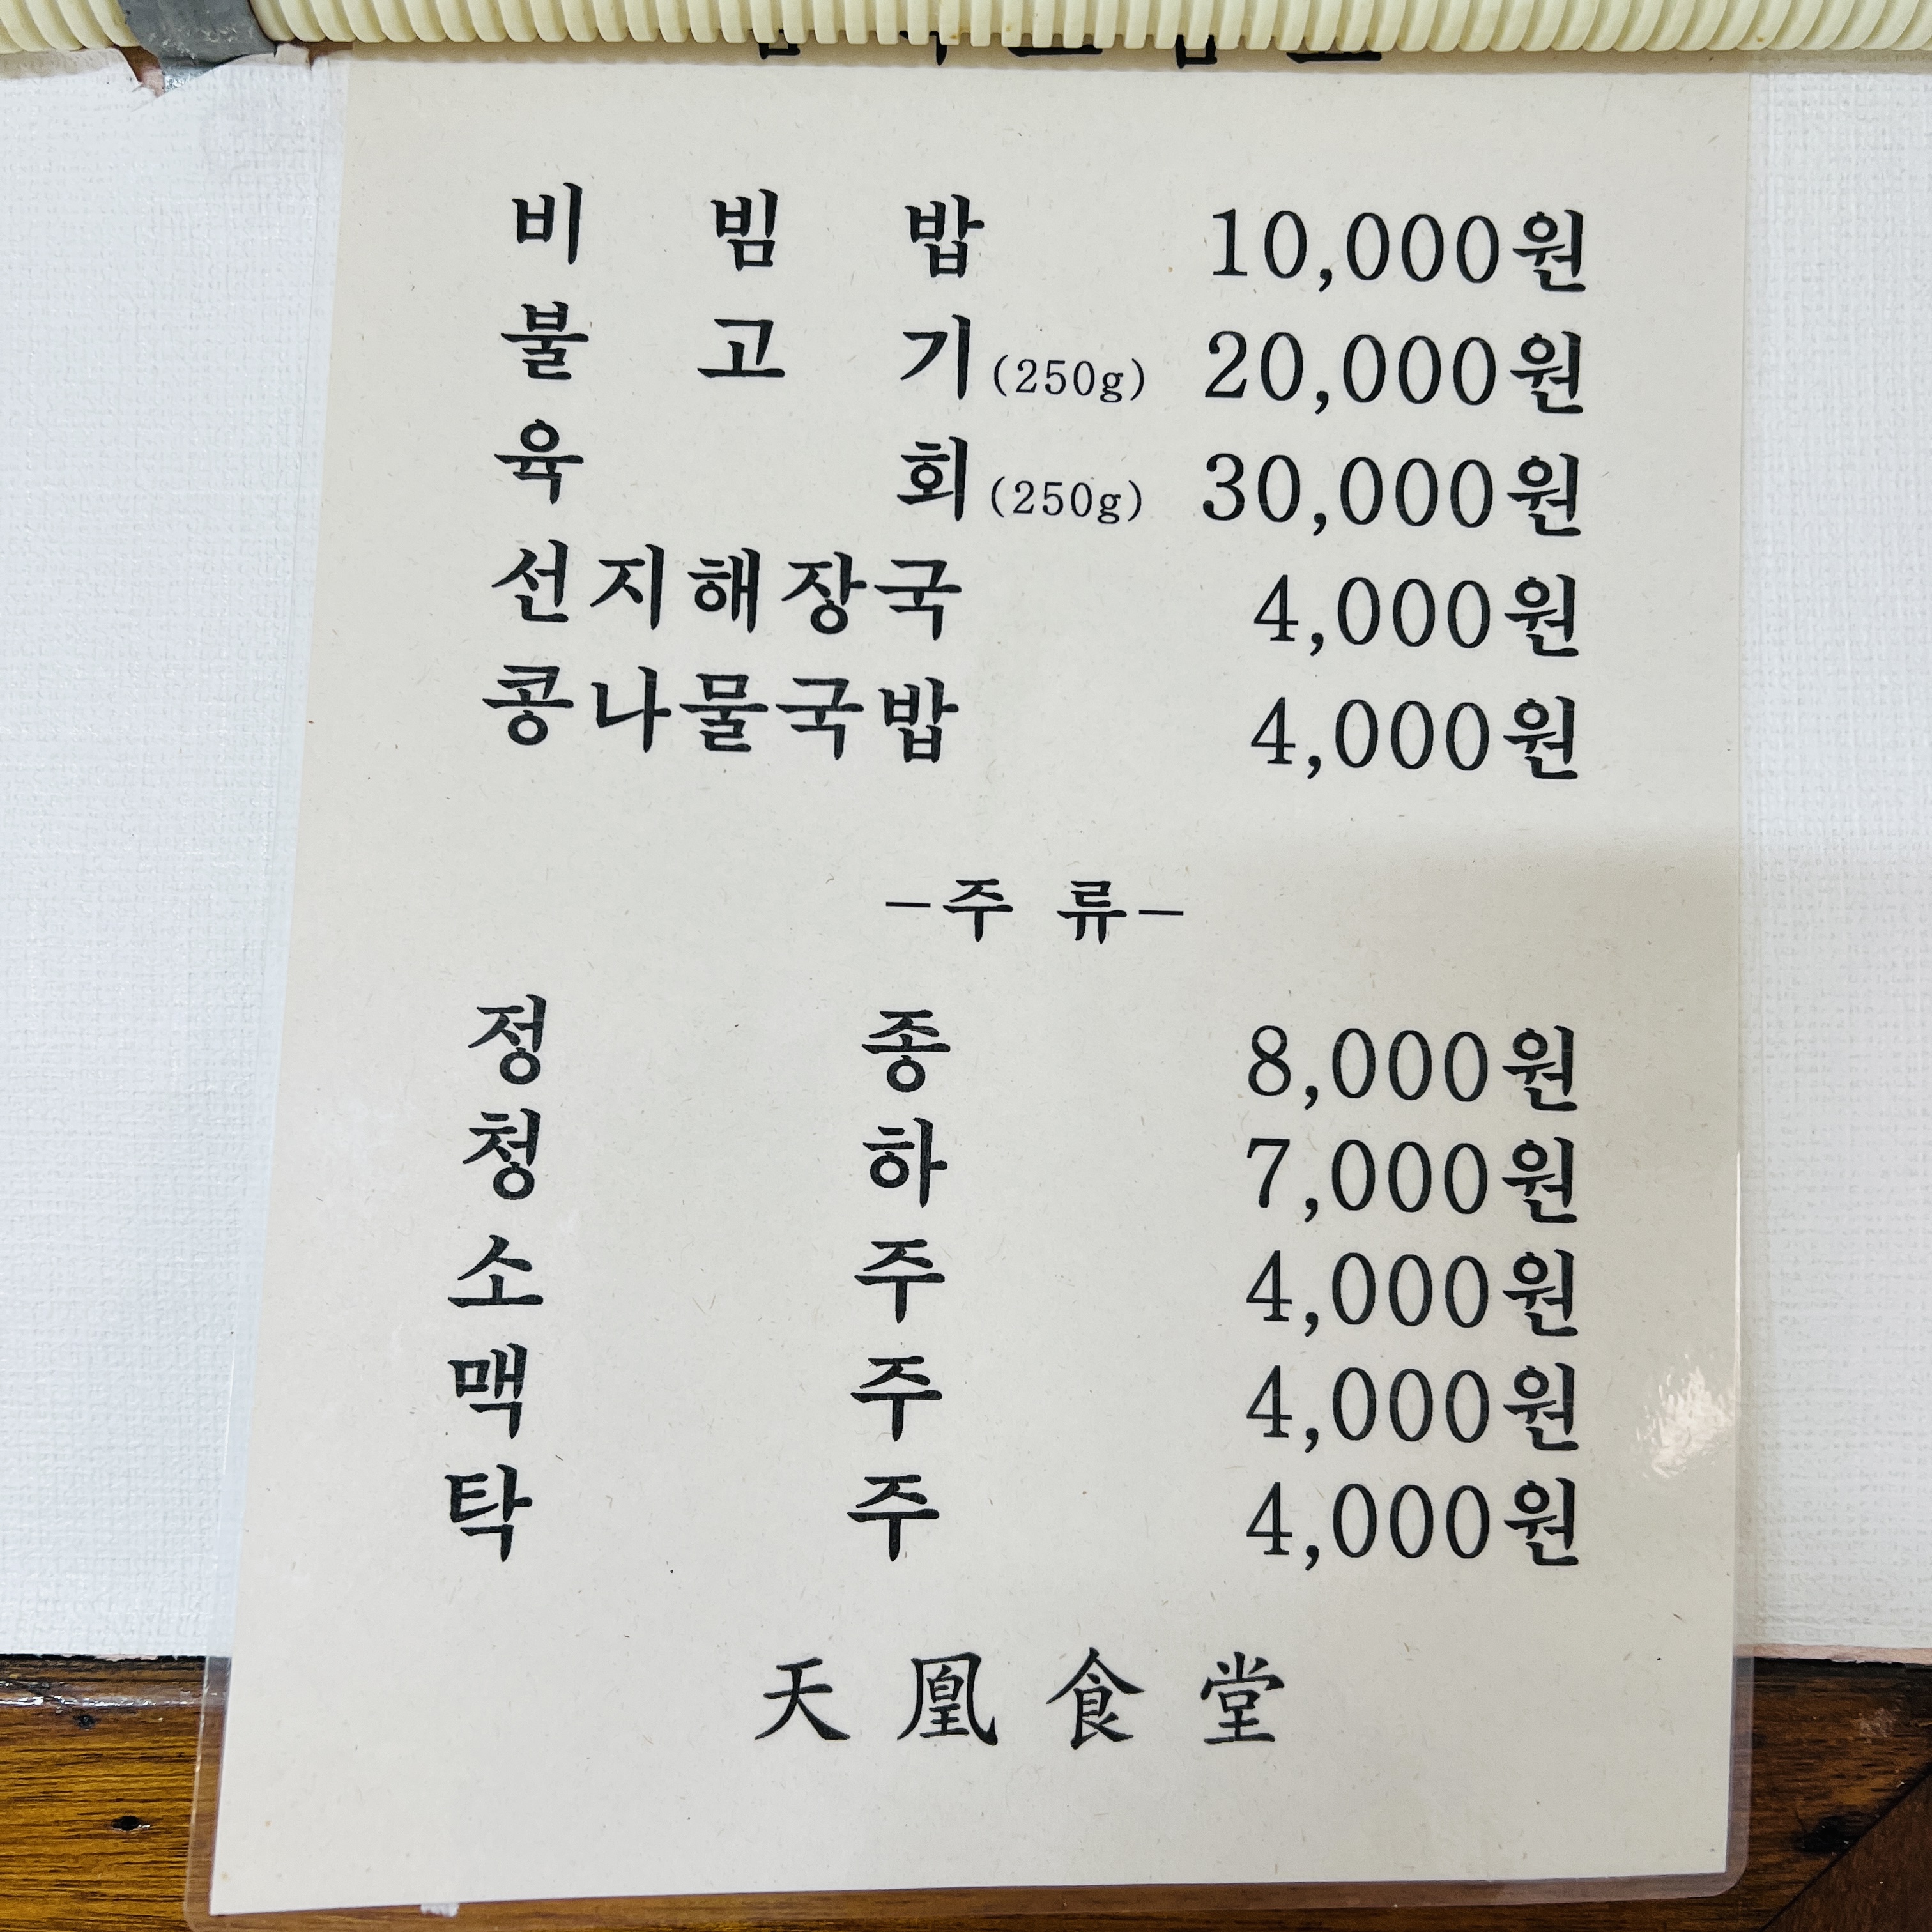 비 빔 밥 10,000원
불 고 기(250g) 20,000원
육 회(250g) 30,000원
선지해장국 4,000원
콩나물국밥 4,000원
-주 류-
정 종 8,000원
청 하 7,000원
소 주 4,000원
맥 주 4,000원
탁 주 4,000원
天凰食堂